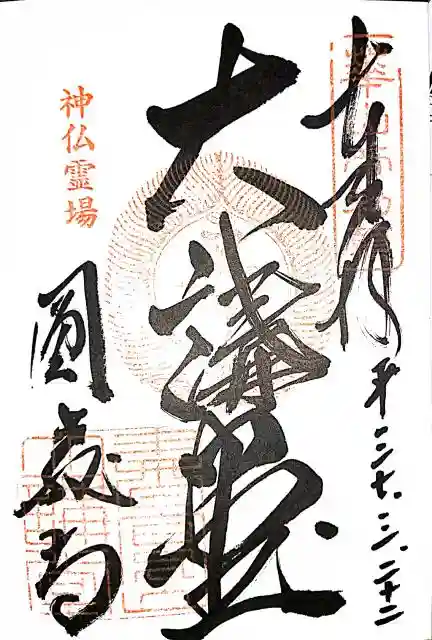 奉拝
平二九.三.二十二
大講堂
神仏霊場
圓教寺